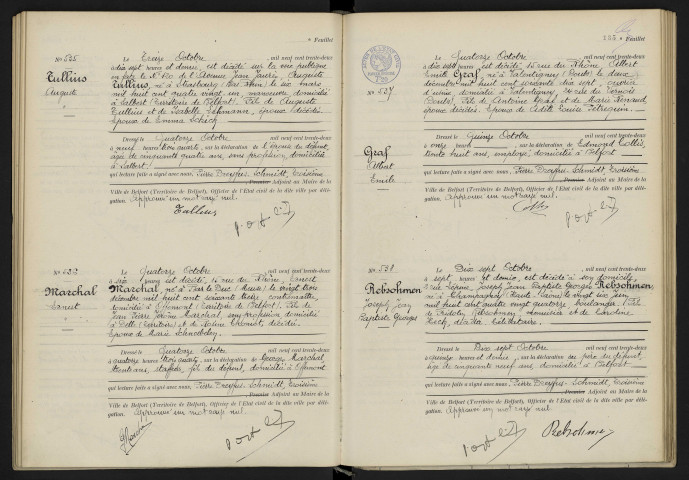 Feuillet
N° 525
Tullius
Auguste
Le Treize Octobre, mil neuf cent trente-deux
à dix sept heures et demie, est décédé sur la voie publique
en face le N° 120 de l'Avenue Jean Jaurès, Auguste
Tullius, né à Strasbourg (Bas Rhin) le six mars
mil huit cent quatre vingt un, manœuvre domicilié
à Valdoie (Territoire de Belfort). Fils de Auguste
Tullius et de Isabelle Lehmann, époux décédés.
Époux de Emma
Dressé le Quatorze Octobre, mil neuf cent trente-deux
à neuf heures trois quarts, sur la déclaration de l'épouse du défunt,
âgée de cinquante quatre ans, sans profession, domiciliée
à
qui lecture faite a signé avec nous, Pierre Dreyfus-Schmidt, Troisième
Premier Adjoint au Maire de la
Ville de Belfort (Territoire de Belfort), Officier de l'Etat civil de la dite ville par délé-
gation. Approuvé un mot rayé nul.
Tullius
N° 526
Marchal
Ernest
Le Quatorze Octobre, mil neuf cent trente-deux
à dix heures, est décédé, 15 rue du Rhône, Ernest
Marchal, né à Bar le Duc (Meuse) le vingt trois
décembre mil huit cent soixante treize,
domicilié à Offemont (Territoire de Belfort). Fils de
Jean Pierre Jérôme Marchal, sans profession domicilié
à Delle (Territoire) et de décédée.
Époux de Marie
Dressé le Quatorze Octobre, mil neuf cent trente-deux
à quatorze heures trois quarts, sur la déclaration de Georges Marchal
trente ans, fils du défunt, domicilié à Offemont
qui lecture faite a signé avec nous, Pierre Dreyfus-Schmidt, Troisième
Premier Adjoint au Maire de la
Ville de Belfort (Territoire de Belfort), Officier de l'Etat civil de la dite ville par délé-
gation. Approuvé un mot rayé nul.
155 e Feuillet
N° 527
Graf
Albert
Emile
Le Quatorze Octobre, mil neuf cent trente-deux
à dix sept heures est décédé, 15 rue du Rhône, Albert
Emile Graf, né à Valentigney (Doubs) le deux
décembre mil huit cent soixante dix sept, ouvrier
d'usine domicilié à Valentigney, rue du Vernois
(Doubs). Fils de Antoine Graf et de Marie Renaud,
époux décédés. Époux de Edith Louise Pétrequin.
Dressé le Quinze Octobre, mil neuf cent trente-deux
à onze heures, sur la déclaration de Edmond
trente huit ans, employé, domicilié à Belfort
qui lecture faite a signé avec nous, Pierre Dreyfus-Schmidt, Troisième
Premier Adjoint au Maire de la
Ville de Belfort (Territoire de Belfort), Officier de l'Etat civil de la dite ville par délé-
gation. Approuvé un mot rayé nul.
Rebsohmen
Joseph Jean
Baptiste Georges
Le Dix sept Octobre, mil neuf cent trente-deux
à sept heures et demie, est décédé à son domicile,
Joseph Jean Baptiste Georges Rebsohmen,
né à Champagney (Haute-Saône) le vingt six Juin
mil huit cent quatre vingt quatorze, boulanger. Fils
de Fridolin Rebsohmen, et de Caroline
Célibataire.
Dressé le Dix sept Octobre, mil neuf cent trente-deux
à quinze heures et demie, sur la déclaration du père du défunt,
âgé de cinquante neuf ans domicilié à Belfort
qui lecture faite a signé avec nous, Pierre Dreyfus-Schmidt, Troisième
Premier Adjoint au Maire de la
Ville de Belfort (Territoire de Belfort), Officier de l'Etat civil de la dite ville par délé-
gation. Approuvé un mot rayé nul.
Rebsohmen